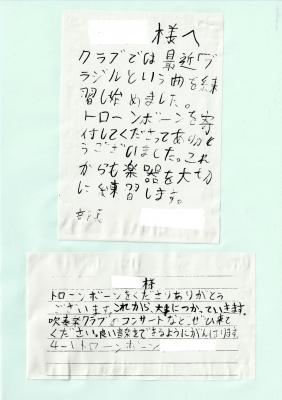 様へ
クラブでは最近ブ
ラジルという曲を練
習し始めました。
トローンボーンを寄
付してくださってありがと
うございました。これ
からも楽器を大切
に練習します。
様
トローンボーンをくださりありがとう
ございます。これから、大事につかっていきます。
吹奏楽クラブでコンサートなど、ぜひ来て
ください。良い音楽をできるようにがんばります。
4-1トローンボーン